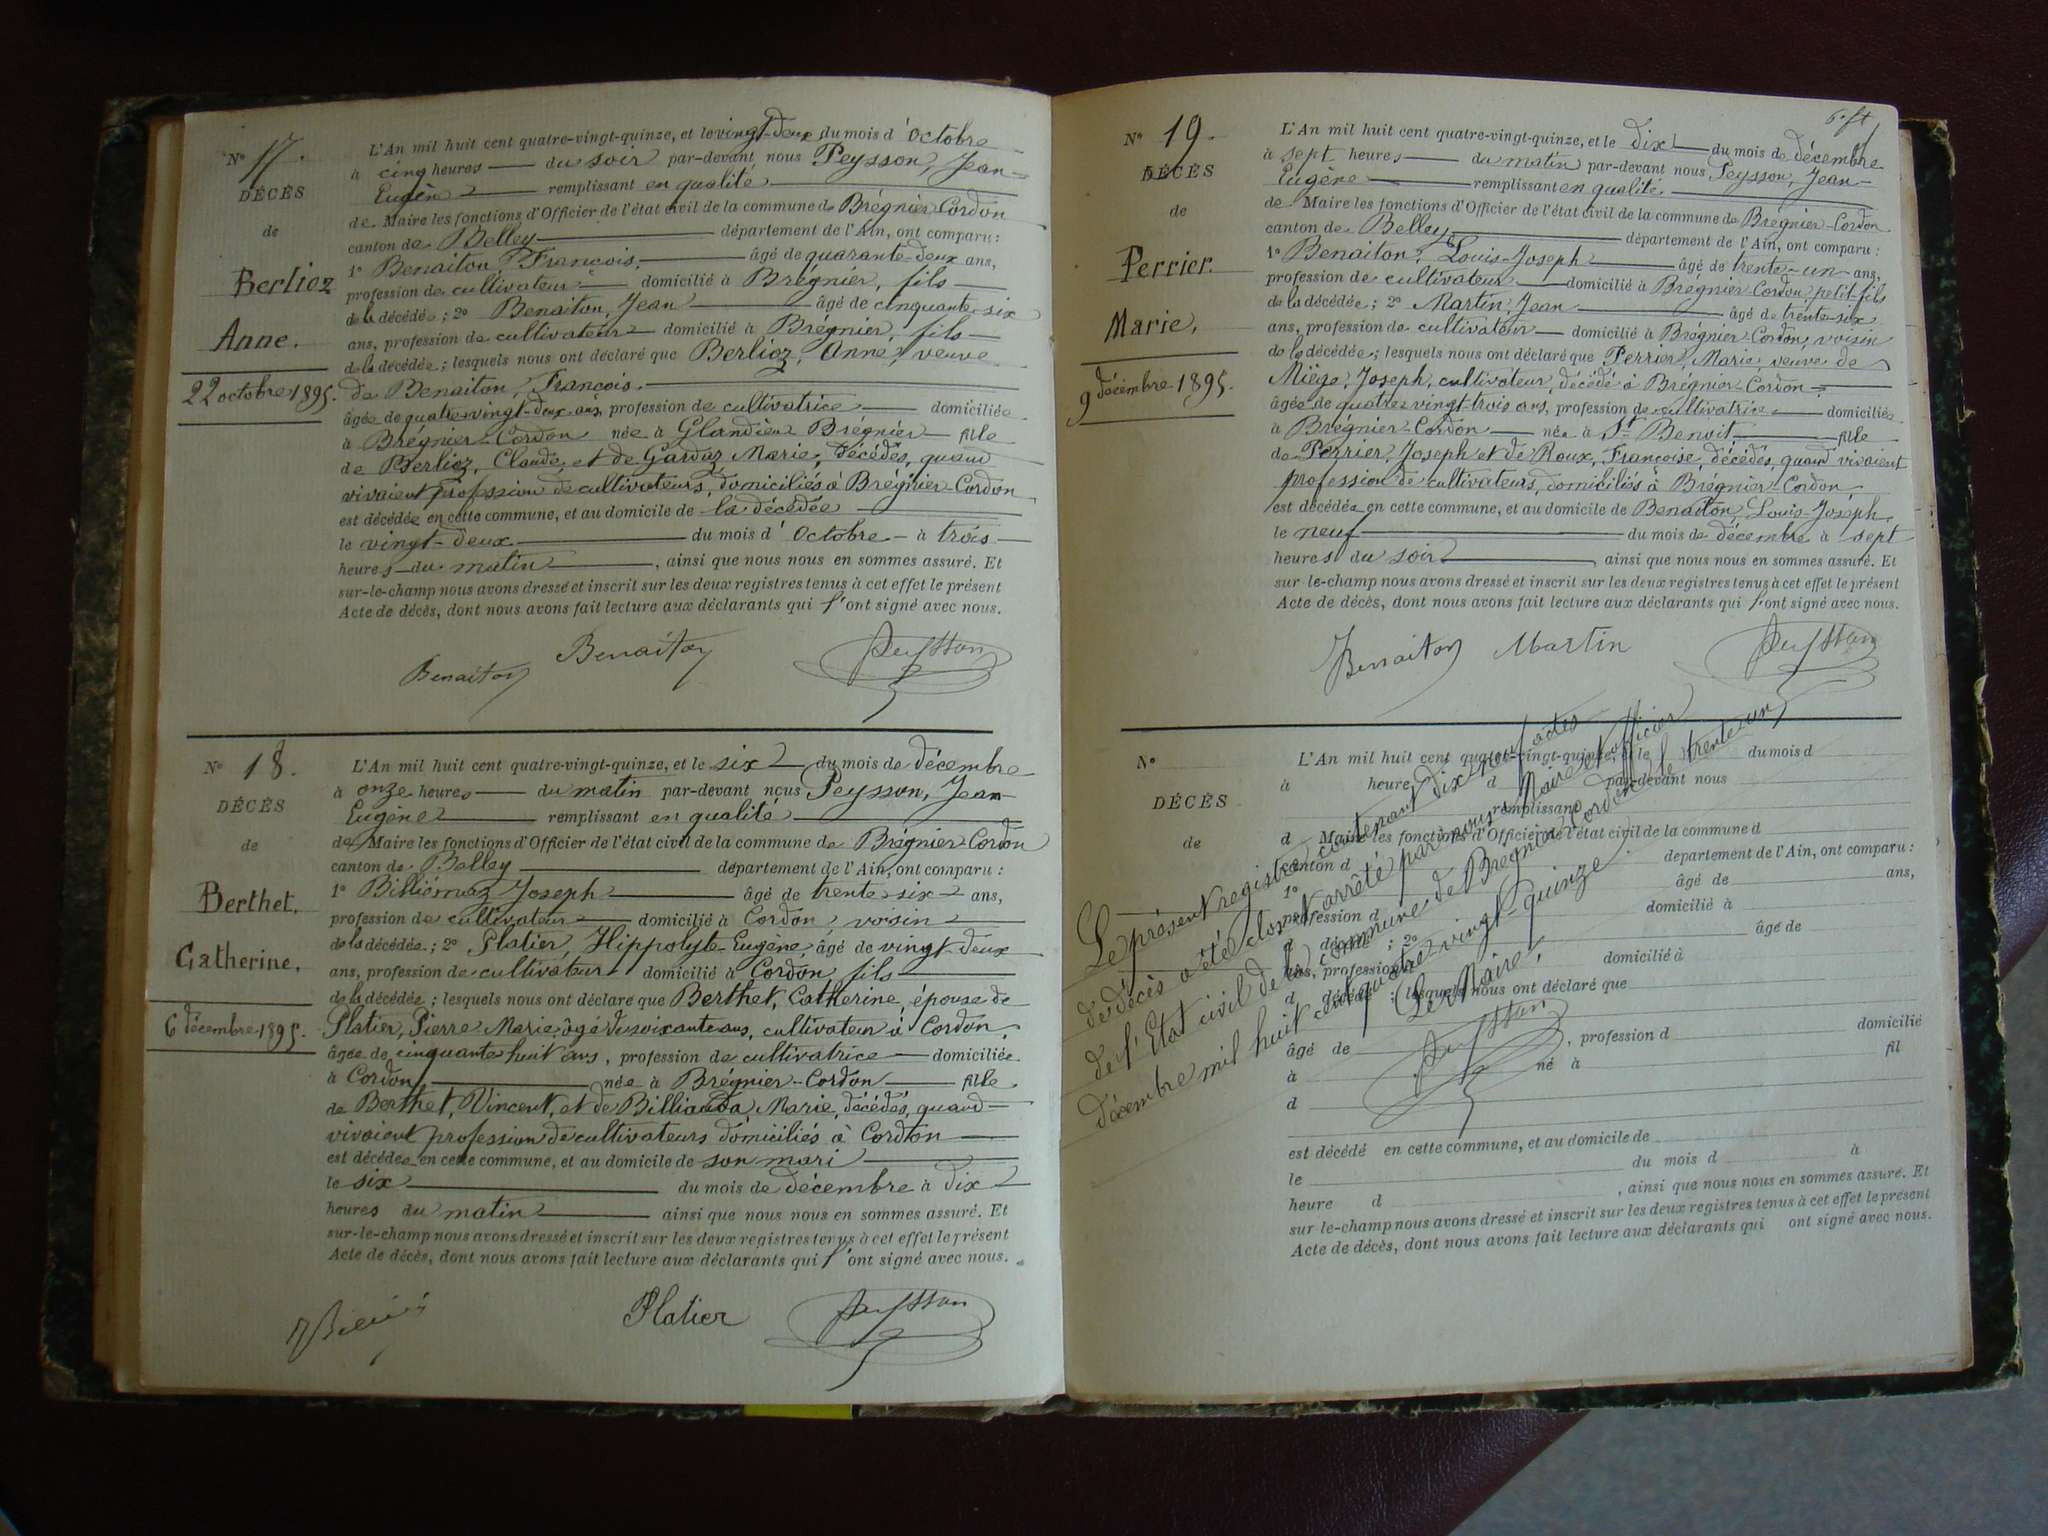 N° 17.
DÉCÈS
de
Berlioz
Anne.
22 octobre 1895.
L'An mil huit cent quatre-vingt-quinze, et le vingt-deux du mois d'octobre
à cinq heures du soir par-devant nous Peysson, Jean-
Eugène remplissant en qualité
de Maire les fonctions d'Officier de l'état civil de la commune de Brégnier-Cordon
canton de Belley département de l'Ain, ont comparu :
1° Benaiton, François, âgé de quarante-deux ans,
profession de cultivateur domicilié à Brégnier, fils
de la décédée ; 2° Benaiton, Jean âgé de cinquante-six
ans, profession de cultivateur domicilié à Brégnier, fils
de la décédée ; lesquels nous ont déclaré que Berlioz, Anne, veuve
de Benaiton, François.
âgée de quatre-vingt-deux ans, profession de cultivatrice domiciliée
à Brégnier-Cordon née à Glandieu Brégnier fille
de Berlioz, Claude, et de Gardaz Marie, décédés, quand
vivaient profession de cultivateurs, domiciliés à Brégnier-Cordon
est décédée en cette commune, et au domicile de la décédée
le vingt-deux du mois d'octobre à trois
heures du matin, ainsi que nous nous en sommes assuré. Et
sur-le-champ nous avons dressé et inscrit sur les deux registres tenus à cet effet le présent
Acte de décès, dont nous avons fait lecture aux déclarants qui l'ont signé avec nous.
Benaiton Benaiton Peysson
N° 18.
DÉCÈS
de
Berthet,
Catherine,
6 décembre 1895.
L'An mil huit cent quatre-vingt-quinze, et le six du mois de décembre
à onze heures du matin par-devant nous Peysson, Jean-
Eugène remplissant en qualité
de Maire les fonctions d'Officier de l'état civil de la commune de Brégnier-Cordon
canton de Belley département de l'Ain, ont comparu :
1° Billiémaz Joseph âgé de trente-six ans,
profession de cultivateur domicilié à Cordon, voisin
de la décédée ; 2° Platier, Hippolyte-Eugène, âgé de vingt-deux
ans, profession de cultivateur domicilié à Cordon, fils
de la décédée ; lesquels nous ont déclaré que Berthet, Catherine, épouse de
Platier, Pierre Marie, âgé de soixante ans, cultivateur à Cordon,
âgée de cinquante huit ans, profession de cultivatrice domiciliée
à Cordon, née à Brégnier-Cordon fille
de Berthet, Vincent, et de Billiauda, Marie, décédés, quand
vivaient profession de cultivateurs domiciliés à Cordon
est décédée en cette commune, et au domicile de son mari
le six du mois de décembre à dix
heures du matin ainsi que nous nous en sommes assuré. Et
sur-le-champ nous avons dressé et inscrit sur les deux registres tenus à cet effet le présent
Acte de décès, dont nous avons fait lecture aux déclarants qui l'ont signé avec nous.
Platier Peysson
N° 19.
DÉCÈS
de
Perrier.
Marie,
9 décembre 1895.
L'An mil huit cent quatre-vingt-quinze, et le dix du mois de décembre
à sept heures du matin par-devant nous Peysson, Jean-
Eugène remplissant en qualité
de Maire les fonctions d'Officier de l'état civil de la commune de Brégnier-Cordon
canton de Belley département de l'Ain, ont comparu :
1° Benaiton, Louis-Joseph âgé de trente-un ans,
profession de cultivateur domicilié à Brégnier-Cordon, petit-fils
de la décédée ; 2° Martin, Jean âgé de trente-six
ans, profession de cultivateur domicilié à Brégnier-Cordon, voisin
de la décédée ; lesquels nous ont déclaré que Perrier, Marie, veuve de
Miége, Joseph, cultivateur, décédé à Brégnier-Cordon
âgée de quatre-vingt-trois ans, profession de cultivatrice domiciliée
à Brégnier-Cordon née à St Benoit fille
de Perrier, Joseph et de Roux, Françoise, décédés, quand vivaient
profession de cultivateurs, domiciliés à Brégnier-Cordon
est décédée en cette commune, et au domicile de Benaiton, Louis-Joseph
le neuf du mois de décembre à sept
heures du soir, ainsi que nous nous en sommes assuré. Et
sur-le-champ nous avons dressé et inscrit sur les deux registres tenus à cet effet le présent
Acte de décès, dont nous avons fait lecture aux déclarants qui l'ont signé avec nous.
Benaiton Martin Peysson
N°
DÉCÈS
de
L'An mil huit cent quatre-vingt-quinze, et le du mois d
à heure d par-devant nous
remplissant
d Maire les fonctions d'Officier de l'état civil de la commune d
canton d département de l'Ain, ont comparu :
1° âgé de ans,
profession d domicilié à
d décédé ; 2° âgé de
ans, profession d domicilié à
d décédé ; lesquels nous ont déclaré que
âgé de , profession d domicilié
à né à fil
d
est décédé en cette commune, et au domicile de
le du mois d à
heure d , ainsi que nous nous en sommes assuré. Et
sur-le-champ nous avons dressé et inscrit sur les deux registres tenus à cet effet le présent
Acte de décès, dont nous avons fait lecture aux déclarants qui ont signé avec nous.
Le présent registre contenant dix-neuf actes
de décès a été clos et arrêté par nous Maire et officier
de l'Etat civil de la commune de Brégnier-Cordon le trente-un
décembre mil huit cent quatre-vingt-quinze.
Le Maire,
Peysson